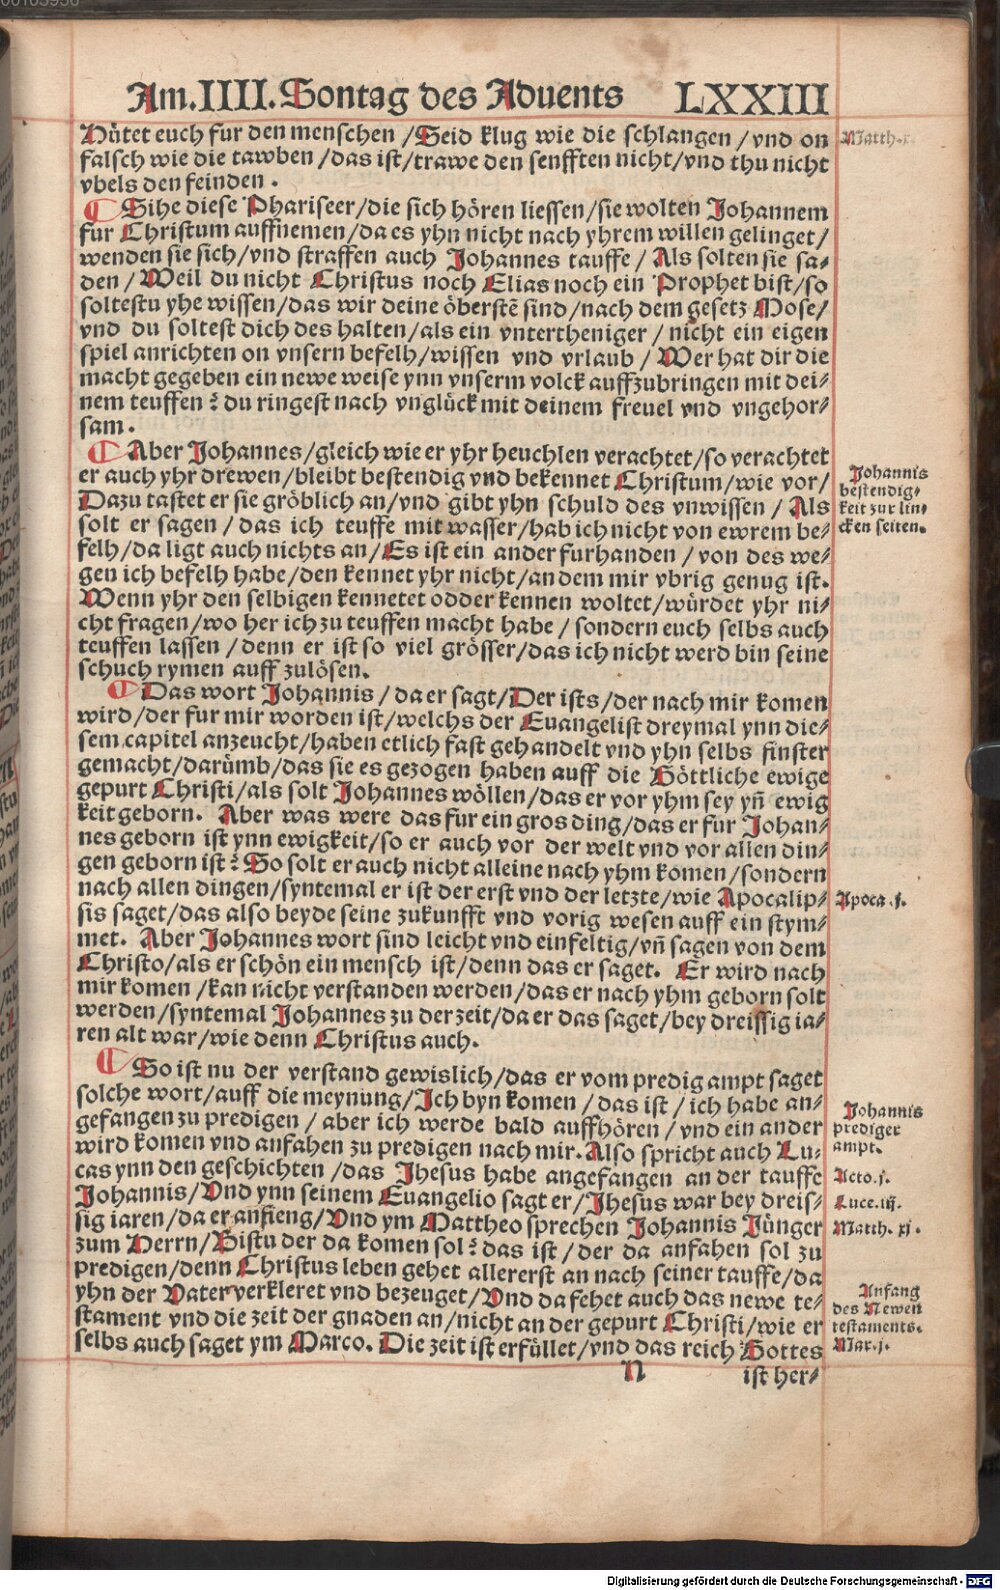 Am.IIII.Sontag des Aduents LXXIII
Hütet euch fur den menschen /Seid klug wie die schlangen / vnd on
falsch wie die tawben /das ist/trawe den senfften nicht/vnd thu nicht
vbels den feinden .
Matth.x.
¶ Sihe diese Phariseer/die sich hören liessen/sie wolten Johannem
fur Christum auffnemen/da es yhn nicht nach yhrem willen gelinget/
wenden sie sich/vnd straffen auch Johannes tauffe / Als solten sie sa⸗
den / Weil du nicht Christus noch Elias noch ein Prophet bist/so
soltestu yhe wissen/das wir deine öberstē sind/nach dem gesetz Mose/
vnd du soltest dich des halten/als ein vntertheniger / nicht ein eigen
spiel anrichten on vnsern befelh/wissen vnd vrlaub / Wer hat dir die
macht gegeben ein newe weise ynn vnserm volck auffzubringen mit dei⸗
nem teuffen ? du ringest nach vnglück mit deinem freuel vnd vngehor⸗
sam .
¶ Aber Johannes/gleich wie er yhr heuchlen verachtet/so verachtet
er auch yhr drewen/bleibt bestendig vnd bekennet Christum/wie vor/
Dazu tastet er sie gröblich an/vnd gibt yhn schuld des vnwissen / Als
solt er sagen / das ich teuffe mit wasser/hab ich nicht von ewrem be⸗
felh/da ligt auch nichts an/Es ist ein ander furhanden / von des we⸗
gen ich befelh habe/den kennet yhr nicht/an dem mir vbrig genug ist.
Wenn yhr den selbigen kennetet odder kennen woltet/würdet yhr ni⸗
cht fragen/wo her ich zu teuffen macht habe / sondern euch selbs auch
teuffen lassen / denn er ist so viel grösser/das ich nicht werd bin seine
schuch rymen auff zulösen.
Johannis
bestendig⸗
keit zur lin⸗
cken seiten.
¶ Das wort Johannis / da er sagt/Der ists/der nach mir komen
wird/der fur mir worden ist/welchs der Euangelist dreymal ynn die⸗
sem capitel anzeucht/haben etlich fast gehandelt vnd yhn selbs finster
gemacht/darümb/das sie es gezogen haben auff die Göttliche ewige
gepurt Christi/als solt Johannes wöllen/das er vor yhm sey yñ ewig
keit geborn. Aber was were das fur ein gros ding/das er fur Johan⸗
nes geborn ist ynn ewigkeit/so er auch vor der welt vnd vor allen din⸗
gen geborn ist ? So solt er auch nicht alleine nach yhm komen/sondern
nach allen dingen/syntemal er ist der erst vnd der letzte/wie Apocalip⸗
sis saget/das also beyde seine zukunfft vnd vorig wesen auff ein stym⸗
met. Aber Johannes wort sind leicht vnd einfeltig/vñ sagen von dem
Christo/als er schon ein mensch ist/denn das er saget. Er wird nach
mir komen /kan nicht verstanden werden/das er nach yhm geborn solt
werden/syntemal Johannes zu der zeit/da er das saget/bey dreissig ia⸗
ren alt war/wie denn Christus auch.
Apoca.j.
¶ So ist nu der verstand gewislich/das er vom predig ampt saget
solche wort/auff die meynung/Ich byn komen / das ist / ich habe an⸗
gefangen zu predigen / aber ich werde bald auffhören / vnd ein ander
wird komen vnd anfahen zu predigen nach mir. Also spricht auch Lu⸗
cas ynn den geschichten /das Jhesus habe angefangen an der tauffe
Johannis/Vnd ynn seinem Euangelio sagt er/Jhesus war bey dreis⸗
sig iaren/da er anfieng/Vnd ym Mattheo sprechen Johannis Jünger
zum Herrn/Bistu der da komen sol ? das ist / der da anfahen sol zu
predigen/denn Christus leben gehet allererst an nach seiner tauffe/da
yhn der Vater verkleret vnd bezeuget/Vnd da fehet auch das newe te⸗
stament vnd die zeit der gnaden an/nicht an der gepurt Christi/wie er
selbs auch saget ym Marco. Die zeit ist erfüllet/vnd das reich Gottes
Johannis
prediger
ampt.
Acto.j.
Luce.iij.
Matth. xi.
Anfang
des Newen
testaments.
Mar.j.
N ist her⸗
Digitalisierung gefördert durch die Deutsche Forschungsgemeinschaft - DFG